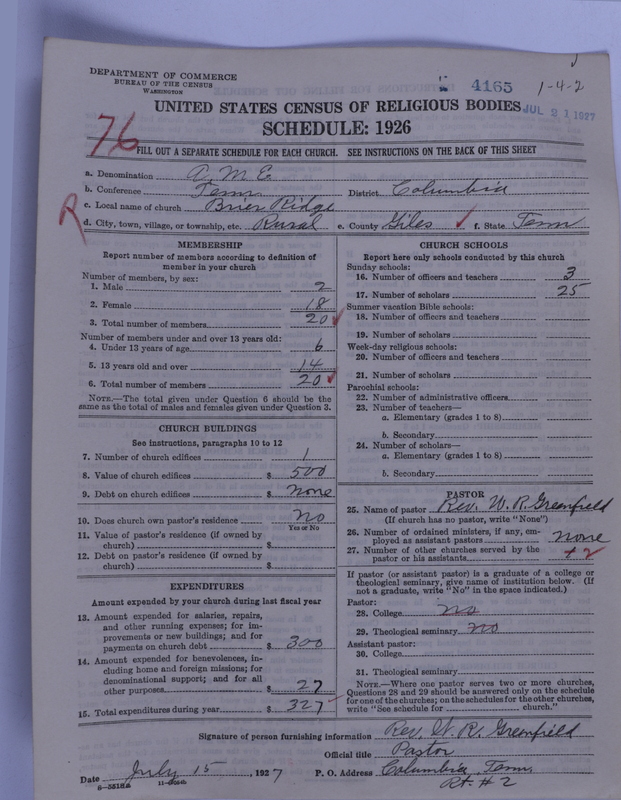 DEPARTMENT OF COMMERCE
BUREAU OF THE CENSUS
WASHINGTON
4165
1-4-2
UNITED STATES CENSUS OF RELIGIOUS BODIES
JUL 21 1927
SCHEDULE: 1926
76
FILL OUT A SEPARATE SCHEDULE FOR EACH CHURCH. SEE INSTRUCTIONS ON THE BACK OF THIS SHEET
a. Denomination A. M. E.
b. Conference Tenn. District Columbia
c. Local name of church Brier Ridge
R
d. City, town, village, or township, etc. Rural e. County Giles f. State Tenn
MEMBERSHIP
Report number of members according to definition of
member in your church
Number of members, by sex:
1. Male 2
2. Female 18
3. Total number of members 20
Number of members under and over 13 years old:
4. Under 13 years of age 6
5. 13 years old and over 14
6. Total number of members 20
NOTE.—The total given under Question 6 should be
the same as the total of males and females given under Question 3.
CHURCH BUILDINGS
See instructions, paragraphs 10 to 12
7. Number of church edifices 1
8. Value of church edifices $ 500
9. Debt on church edifices $ none
10. Does church own pastor's residence no
Yes or No
11. Value of pastor's residence (if owned by
church) $
12. Debt on pastor's residence (if owned by
church) $
EXPENDITURES
Amount expended by your church during last fiscal year
13. Amount expended for salaries, repairs,
and other running expenses; for im-
provements or new buildings; and for
payments on church debt $ 300
14. Amount expended for benevolences, in-
cluding home and foreign missions; for
denominational support; and for all
other purposes $ 27
15. Total expenditures during year $ 327
CHURCH SCHOOLS
Report here only schools conducted by this church
Sunday schools:
16. Number of officers and teachers 3
17. Number of scholars 25
Summer vacation Bible schools:
18. Number of officers and teachers
19. Number of scholars
Week-day religious schools:
20. Number of officers and teachers
21. Number of scholars
Parochial schools:
22. Number of administrative officers
23. Number of teachers—
a. Elementary (grades 1 to 8)
b. Secondary
24. Number of scholars—
a. Elementary (grades 1 to 8)
b. Secondary
PASTOR
25. Name of pastor Rev. W. R. Greenfield
(If church has no pastor, write "None")
26. Number of ordained ministers, if any, em-
ployed as assistant pastors none
27. Number of other churches served by the
pastor or his assistants +2
If pastor (or assistant pastor) is a graduate of a college or
theological seminary, give name of institution below. (If
not a graduate, write "No" in the space indicated.)
Pastor:
28. College no
29. Theological seminary no
Assistant pastor:
30. College
31. Theological seminary
NOTE.—Where one pastor serves two or more churches,
Questions 28 and 29 should be answered only on the schedule
for one of the churches; on the schedules for the other churches,
write "See schedule for church."
Signature of person furnishing information Rev. W. R. Greenfield
Official title Pastor
Date July 15, 1927 P. O. Address Columbia Tenn.
Rt. # 2